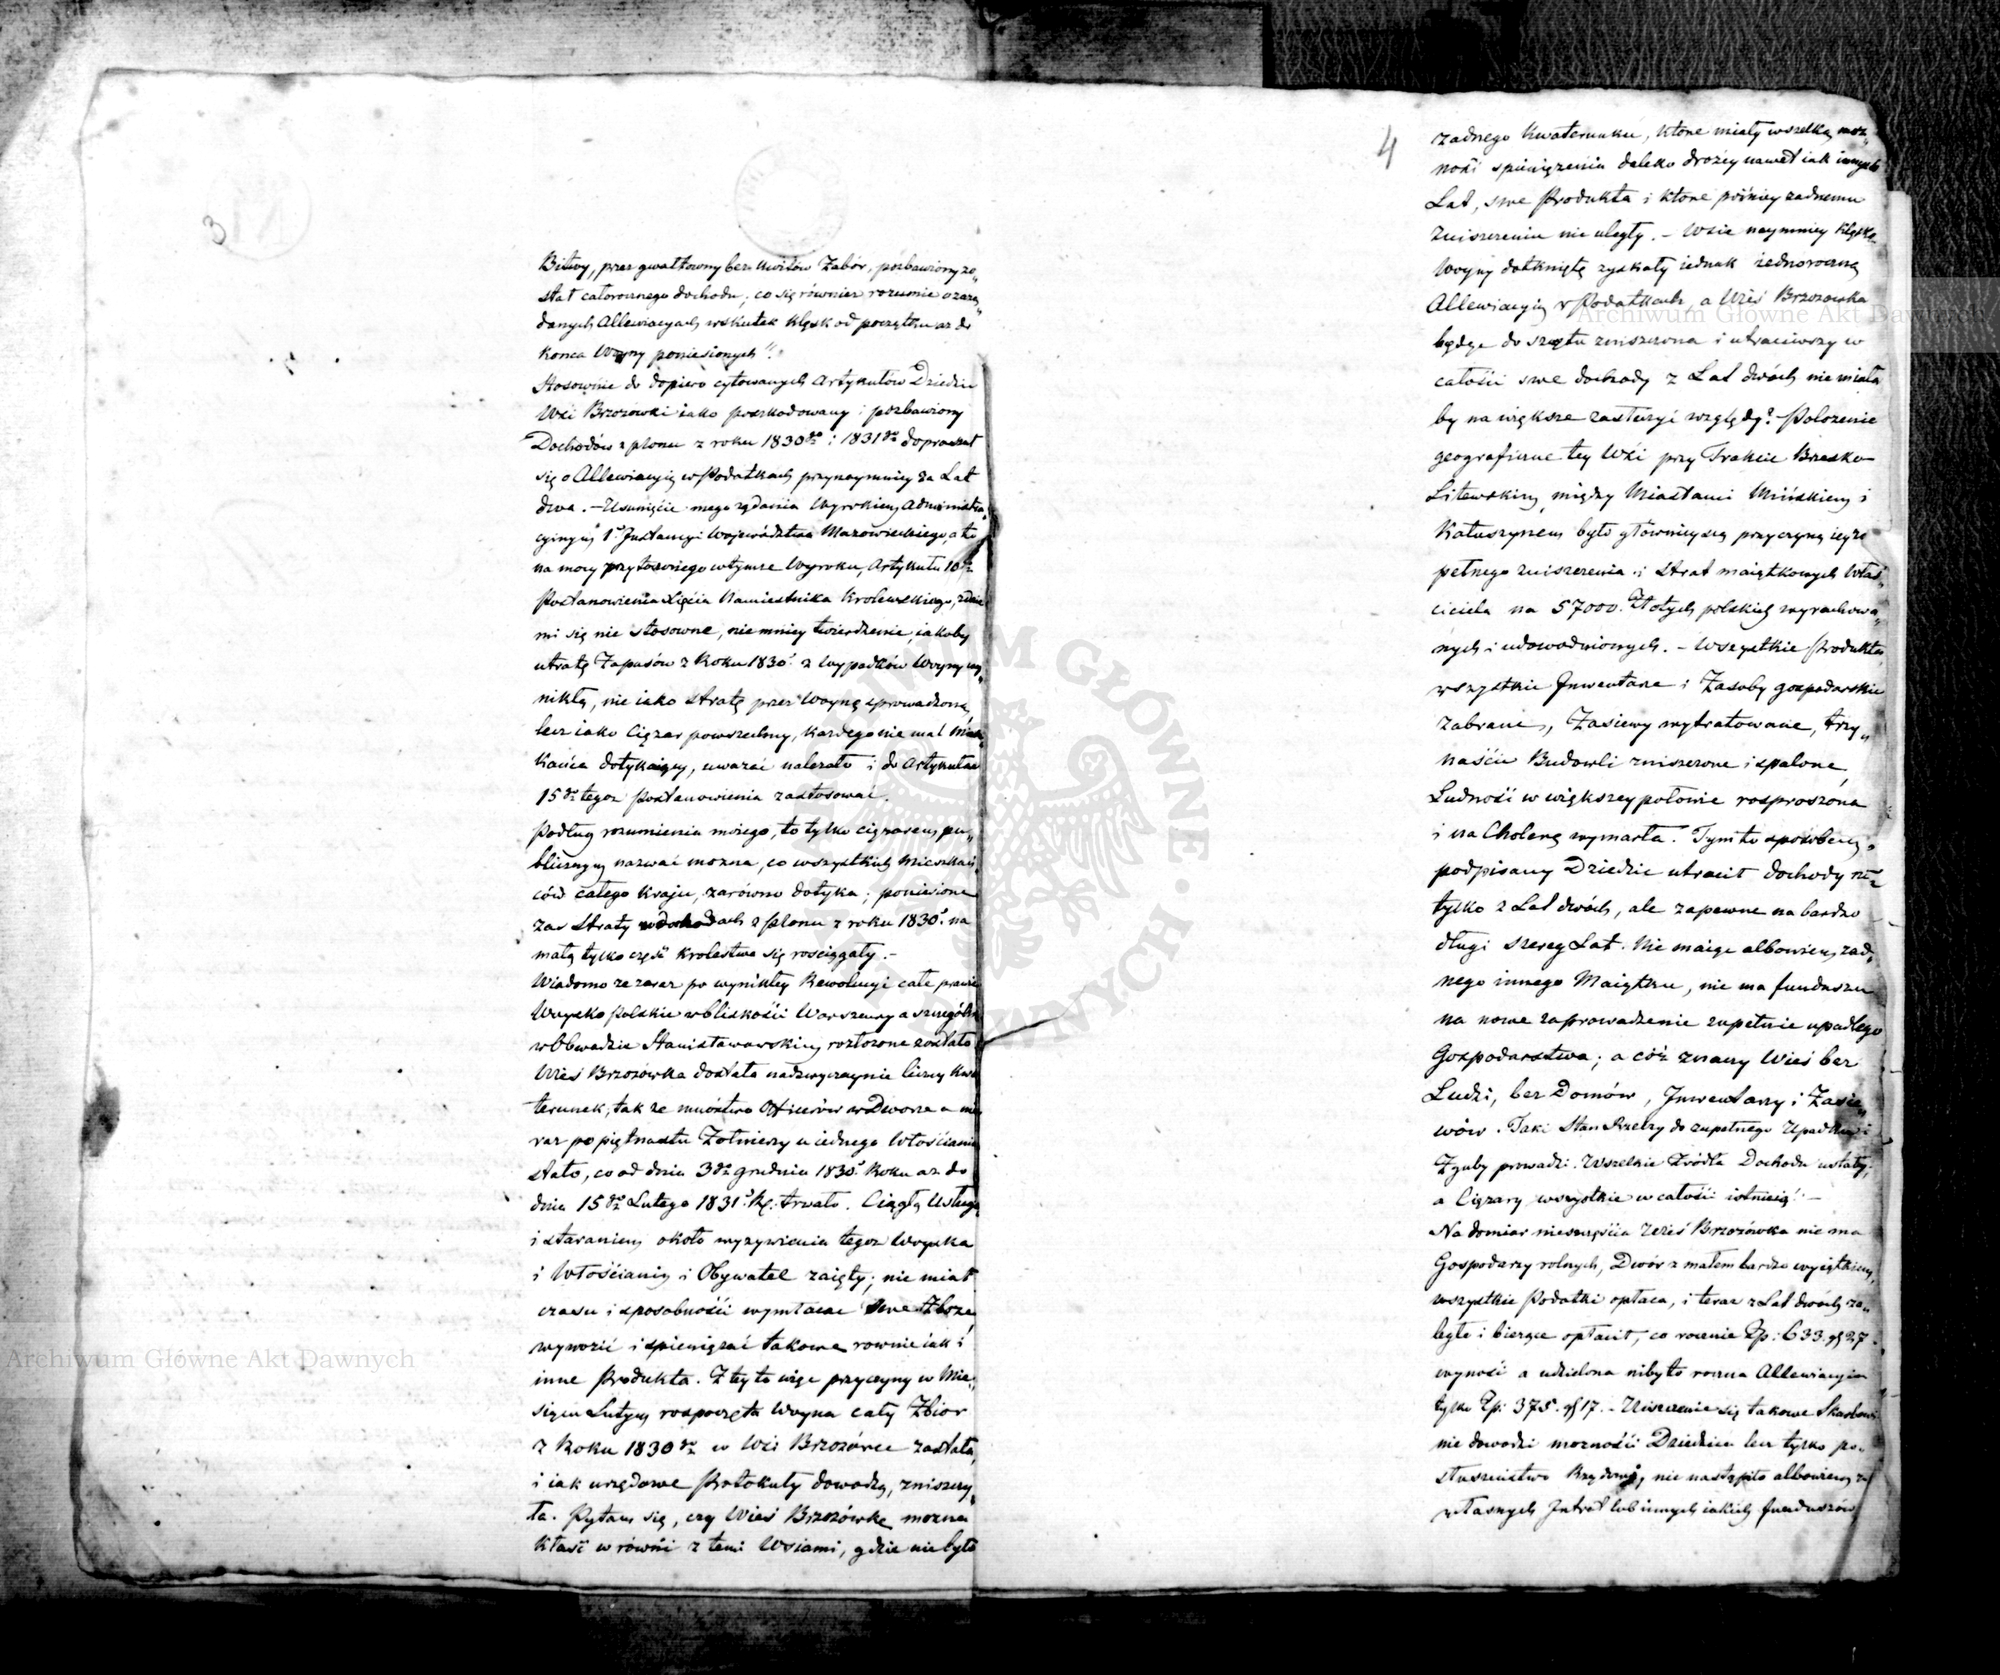 3
Bitwy, przez gwałtowny bez kwitów Zabór, pozbawiony zo„
stał całorocznego dochodu; co się również rozumie o zażą„
danych Allewiacyach wskutek klęsk od początku aż do
konca Woyny poniesionych".
Stosownie do dopiero cytowanych Artykułów Dziedzic
Wsi Brzozówki iako poszkodowany i pozbawiony
Dochodów z plonu z roku 1830go i 1831go dopraszał
się o Allewiacyią w Podatkach przynaymniey za Lat
dwa. – Usunięcie mego żądania Wyrokiem Administra„
cyinym 1ey Instancyi Województwa Mazowieckiego, a to
na mocy przytoczonego w tymże Wyroku, Artykułu 10go
Postanowienia Xięcia Namiestnika Krolewskiego, zdaie
mi się nie stosowne, nie mniey twierdzenie, iakoby
utratę Zapasów z Roku 1830o z wypadków Woyny wy„
nikłą, nie iako stratę przez Woynę sprowadzoną,
lecz iako Ciężar powszechny, każdego nie mal Miesz„
kańca dotykaiący, uważać należało i do Artykułu
15go tegoż Postanowienia zastosować.
Podług rozumienia moiego, to tylko ciężarem pu„
blicznym nazwać można, co wszystkich Mieszkań„
ców całego kraju, zarówno dotyka; poniesione
zaś straty w dochodach z plonu z roku 1830o na
małą tylko część Krolestwa się rościągały. –
Wiadomo że zaraz po wynikłey Rewolucyi całe prawie
Woysko Polskie w bliskości Warszawy a szczególnie
w Obwodzie Stanisławowskim rozłożone zostało
Wieś Brzozówka dostała nadzwyczaynie liczny Kwa
terunek, tak że mnóstwo Officerów w Dworze a nie
raz po piętnastu Żołnierzy u iednego Włościanina
stało, co od dnia 3go Grudnia 1830o Roku aż do
dnia 15go Lutego 1831o R. trwało. Ciągłą Usługą
i staraniem około wyżywienia tegoż Woyska
i Włościanin i Obywatel zaięty; nie miał
czasu i sposobności wymłacać swe Zboże,
wywozić i spieniężać takowe rownie iak i
inne Produkta. Z tey to więc przyczyny w Mie„
siącu Lutym rospoczęta Woyna cały Zbior
z Roku 1830go w Wsi Brzozówce zastała,
i iak urzędowe Protokuły dowodzą, zniszczy„
ła. Pytam się, czy Wieś Brzozówkę można
kłaść w równi z temi Wsiami, gdzie nie było
4
żadnego Kwaterunku, które miały wszelką moż„
ność spieniężenia daleko drożey nawet iak innych
Lat, swe Produkta i które późniey żadnemu
zniszczeniu nie uległy. – Wsie naymniey klęską
Woyny dotknięte zyskały iednak iednoroczną
Allewiacyią w Podatkach, a Wieś Brzozówka
będąc do szczętu zniszczona i utraciwszy w
całości swe dochody z Lat dwóch nie miała
by na większe zasłużyć względy? Położenie
geograficzne tey Wsi przy Trakcie Brzesko
Litewskim, między Miastami Mińskiem i
Kałuszynem było główniejszą przyczyną iey zu
pełnego zniszczenia i strat maiątkowych Właś„
ciciela na 57000. Złotych polskich wyrachowa„
nych i udowodnionych. – Wszystkie Produkta,
wszystkie Inwentarze i Zasoby gospodarskie
zabrane, Zasiewy wytratowane, trzy„
naście Budowli zniszczone i spalone,
Ludność w większey połowie rosproszona
i na Cholerę wymarła. Tym to sposobem,
podpisany Dziedzic utracił dochody nie
tylko z Lat dwóch, ale zapewne na bardzo
długi szereg Lat. Nie maiąc albowiem żad„
nego innego Maiątku, nie ma funduszu
na nowe zaprowadzenie zupełnie upadłego
Gospodarstwa; a cóż znaczy Wieś bez
Ludzi, bez Domów, Inwentarzy i Zasie„
wów. Taki Stan Rzeczy do zupełnego Upadku i
Zguby prowadzi. Wszelkie Zródła Dochodu ustały,
a Ciężary wszystkie w całości istnieią! –
Na domiar nieszczęścia Wieś Brzozówka nie ma
Gospodarzy rolnych, Dwór z małem bardzo wyiątkiem,
wszystkie Podatki opłaca, i teraz z Lat dwóch za„
ległe i bieżące opłacił, co rocznie Zp: 633. gr 27.
wynosi a udzielona nibyto roczna Allewiacyia
tylko Zp: 375. gr 17. – Uiszczenie się takowe Skarbowi
nie dowodzi możności Dziedzica lecz tylko po„
słuszeństwo Rządowi, nie nastąpiło albowiem z
własnych Intrat lub innych iakich funduszów
Archiwum Główne Akt Dawnych
Archiwum Główne Akt Dawnych
ARCHIWUM GŁÓWNE AKT DAWNYCH